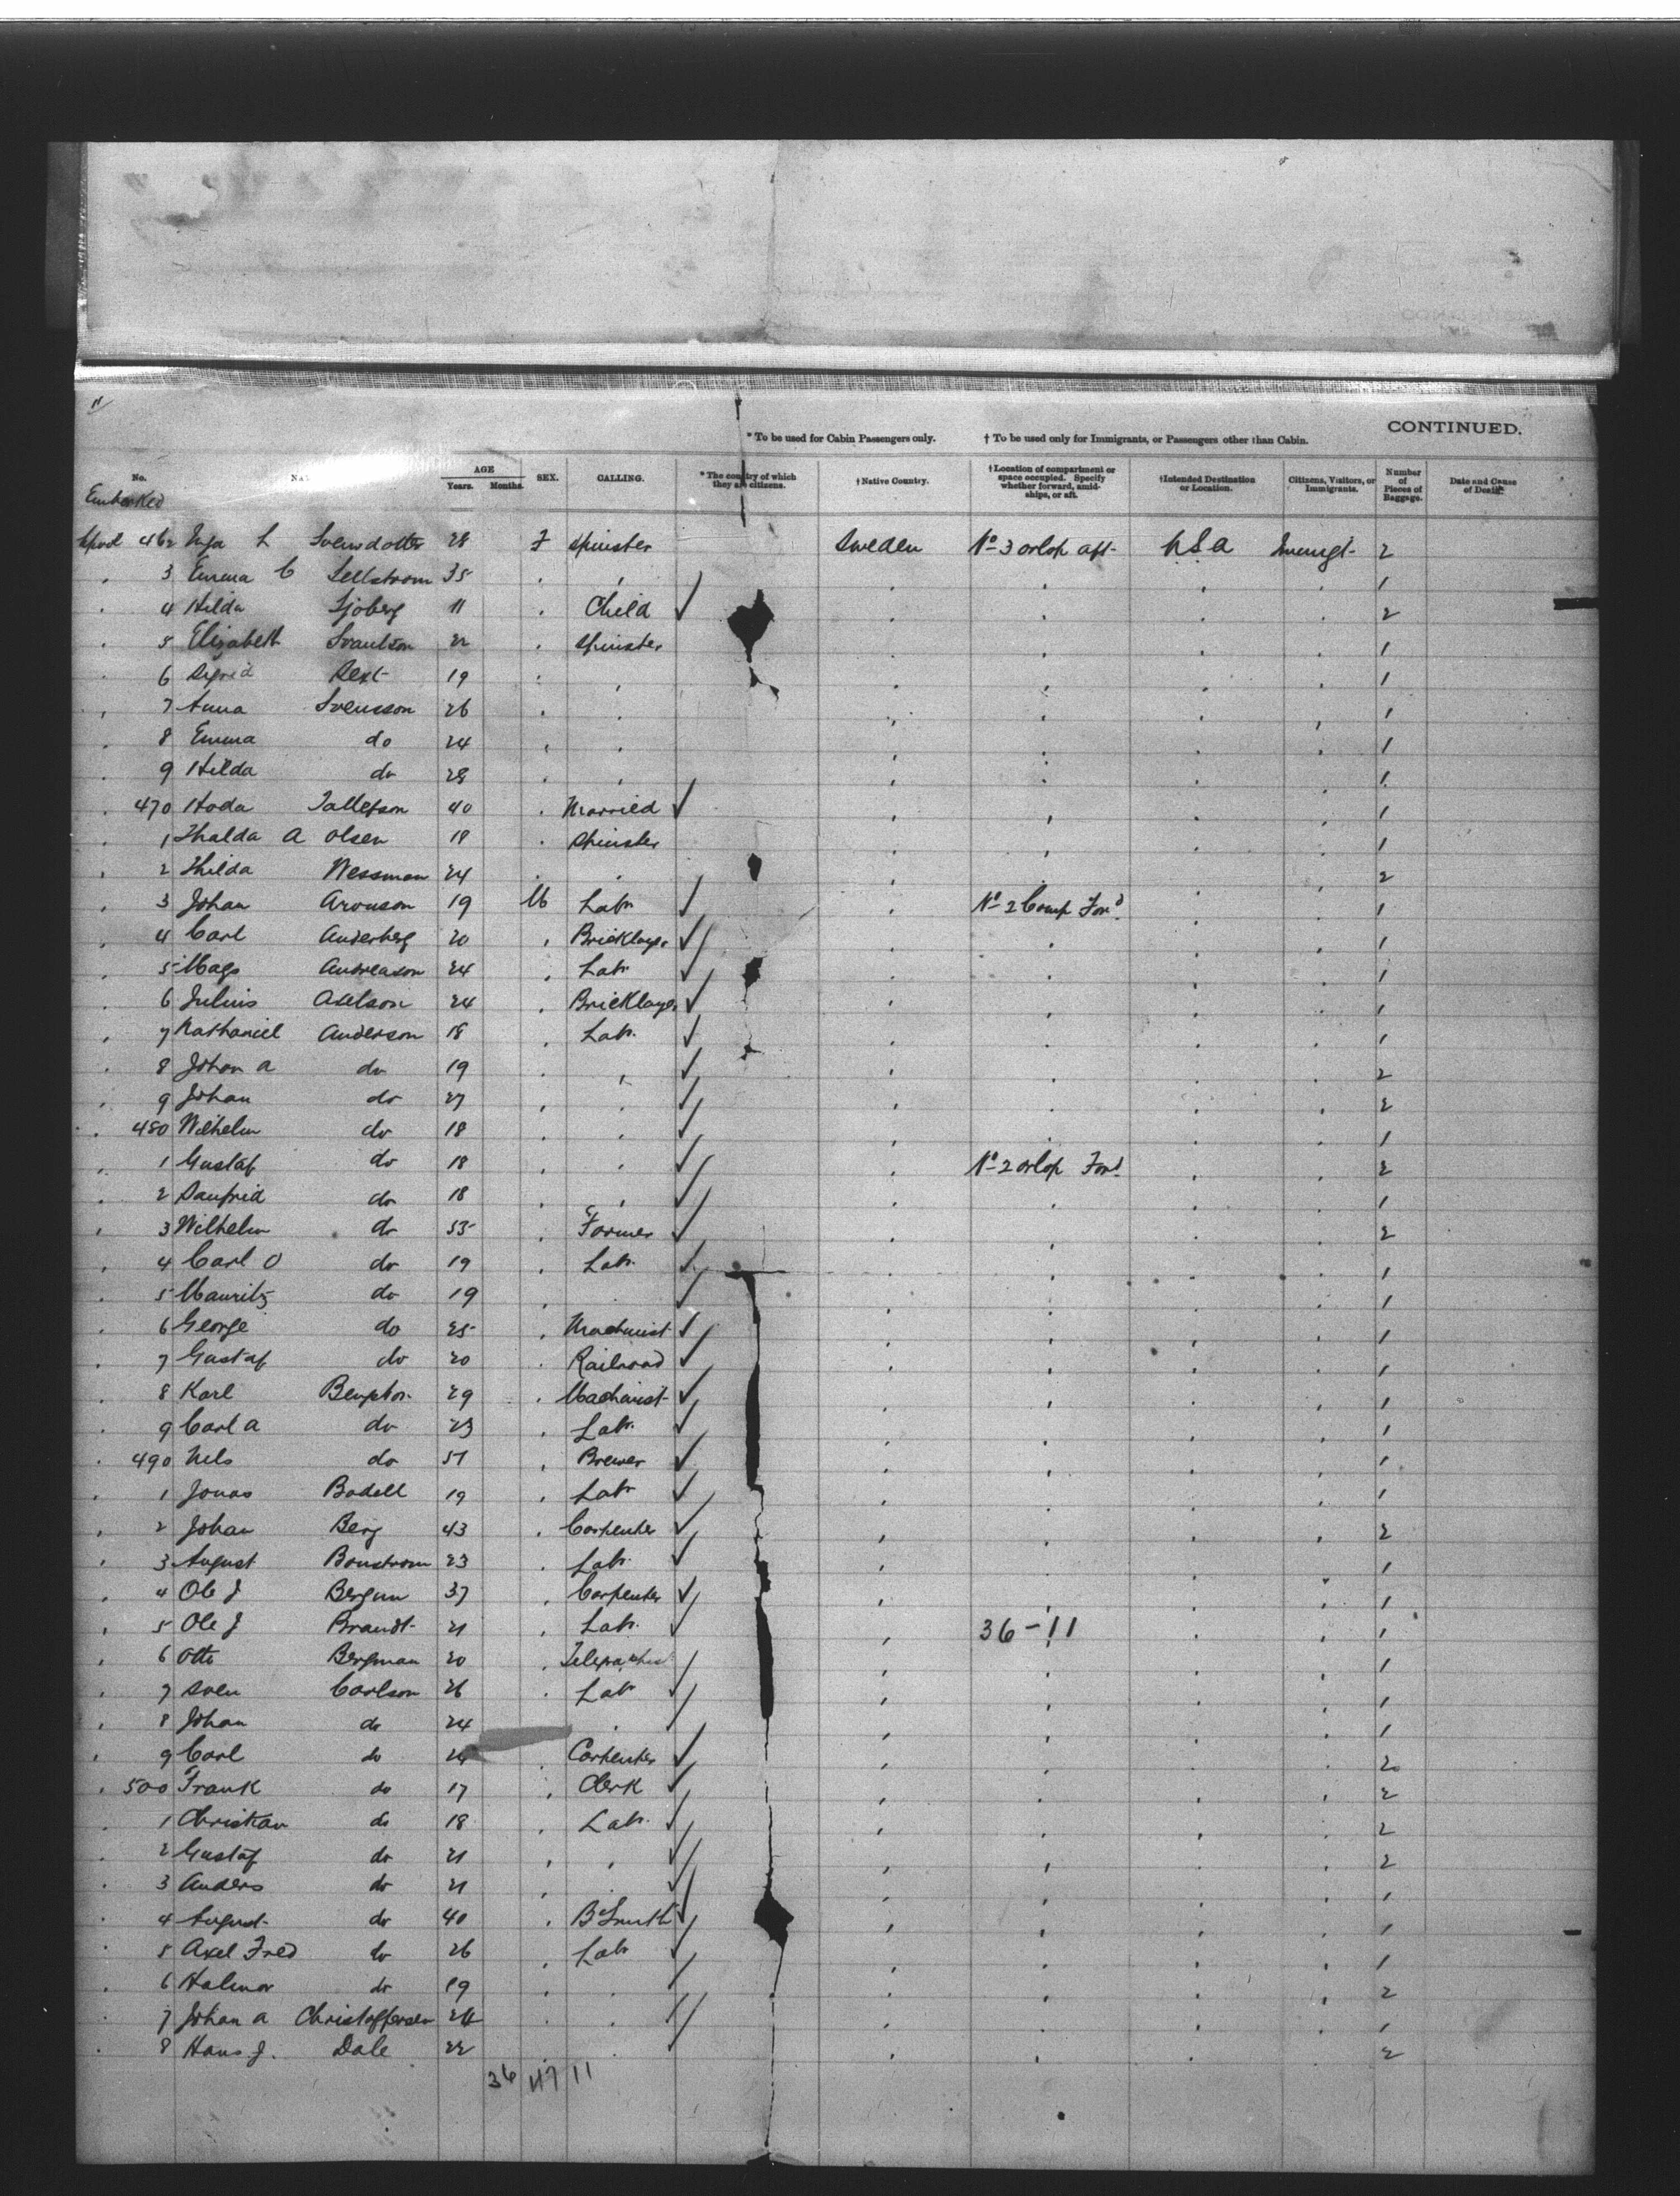 11
CONTINUED.
* To be used for Cabin Passengers only. † To be used only for Immigrants, or Passengers other than Cabin.
No. NA AGE Years. Months. SEX. CALLING. * The country of which they are citizens. † Native Country. † Location of compartment or space occupied. Specify whether forward, amidships, or aft. † Intended Destination or Location. Citizens, Visitors, or Immigrants. Number of Pieces of Baggage. Date and Cause of Death.
Embarked
Lpool 462 Inga L Svensdotter 28 F Spinster Sweden No 3 orlop aft USA Immigt 2
" 3 Emma C Sellstrom 35 " " " " " " 1
" 4 Hilda Sjoberg 11 " Child " " " " 2
" 5 Elizabeth 22 " Spinster " " " " 1
" 6 Sigrid Rext 19 " " " " " " 1
" 7 Anna Svensson 26 " " " " " " 1
" 8 Emma do 24 " " " " " " 1
" 9 Hilda do 28 " " " " " " 1
" 470 Hoda Tallefson 40 " Married " " " " 1
" 1 Thalda A Olsen 18 " Spinster " " " " 1
" 2 Thilda Wessman 24 " " " " " " 2
" 3 Johan Aronson 19 M Labr " No 2 Comp Ford " " 1
" 4 Carl Anderberg 20 " Bricklayer " " " " 1
" 5 Mags Andreason 24 " Labr " " " " 1
" 6 Julius Axelson 24 " Bricklayer " " " " 1
" 7 Nathaniel Anderson 18 " Labr " " " " 1
" 8 Johan A do 19 " " " " " " 2
" 9 Johan do 27 " " " " " " 2
" 480 Wilhelm do 18 " " " " " " 1
" 1 Gustaf do 18 " " " No 2 orlop Ford " " 2
" 2 Sanfrid do 18 " " " " " " 1
" 3 Wilhelm do 53 " Farmer " " " " 2
" 4 Carl O do 19 " Labr " " " " 1
" 5 Mauritz do 19 " " " " " " 1
" 6 George do 25 " Machinist " " " " 1
" 7 Gustaf do 20 " Railroad " " " " 1
" 8 Karl Bengtson 29 " Machinist " " " " 1
" 9 Carl A do 23 " Labr " " " " 1
" 490 Nels do 51 " Brewer " " " " 1
" 1 Jonas Bodell 19 " Labr " " " " 1
" 2 Johan Berg 43 " Carpenter " " " " 2
" 3 August Bonstrom 23 " Labr " " " " 1
" 4 Ole J Bergum 37 " Carpenter " " " " 1
" 5 Ole J Brandt 21 " Labr " 36-11 " " 1
" 6 Otto Bergman 20 " " " " " 1
" 7 Sven Carlson 26 " Labr " " " " 1
" 8 Johan do 24 " " " " " 1
" 9 Carl do 24 " Carpenter " " " " 2
" 500 Frank do 17 " Clerk " " " " 2
" 1 Christian do 18 " Labr " " " " 2
" 2 Gustaf do 21 " " " " " " 2
" 3 Anders do 21 " " " " " " 1
" 4 August do 40 " B'Smith " " " " 1
" 5 Axel Fred do 26 " Labr " " " " 1
" 6 Halmar do 19 " " " " " " 2
" 7 Johan A Christoffersen 24 " " " " " " 1
" 8 Hans J. Dale 22 " " " " " 2
36 47 11